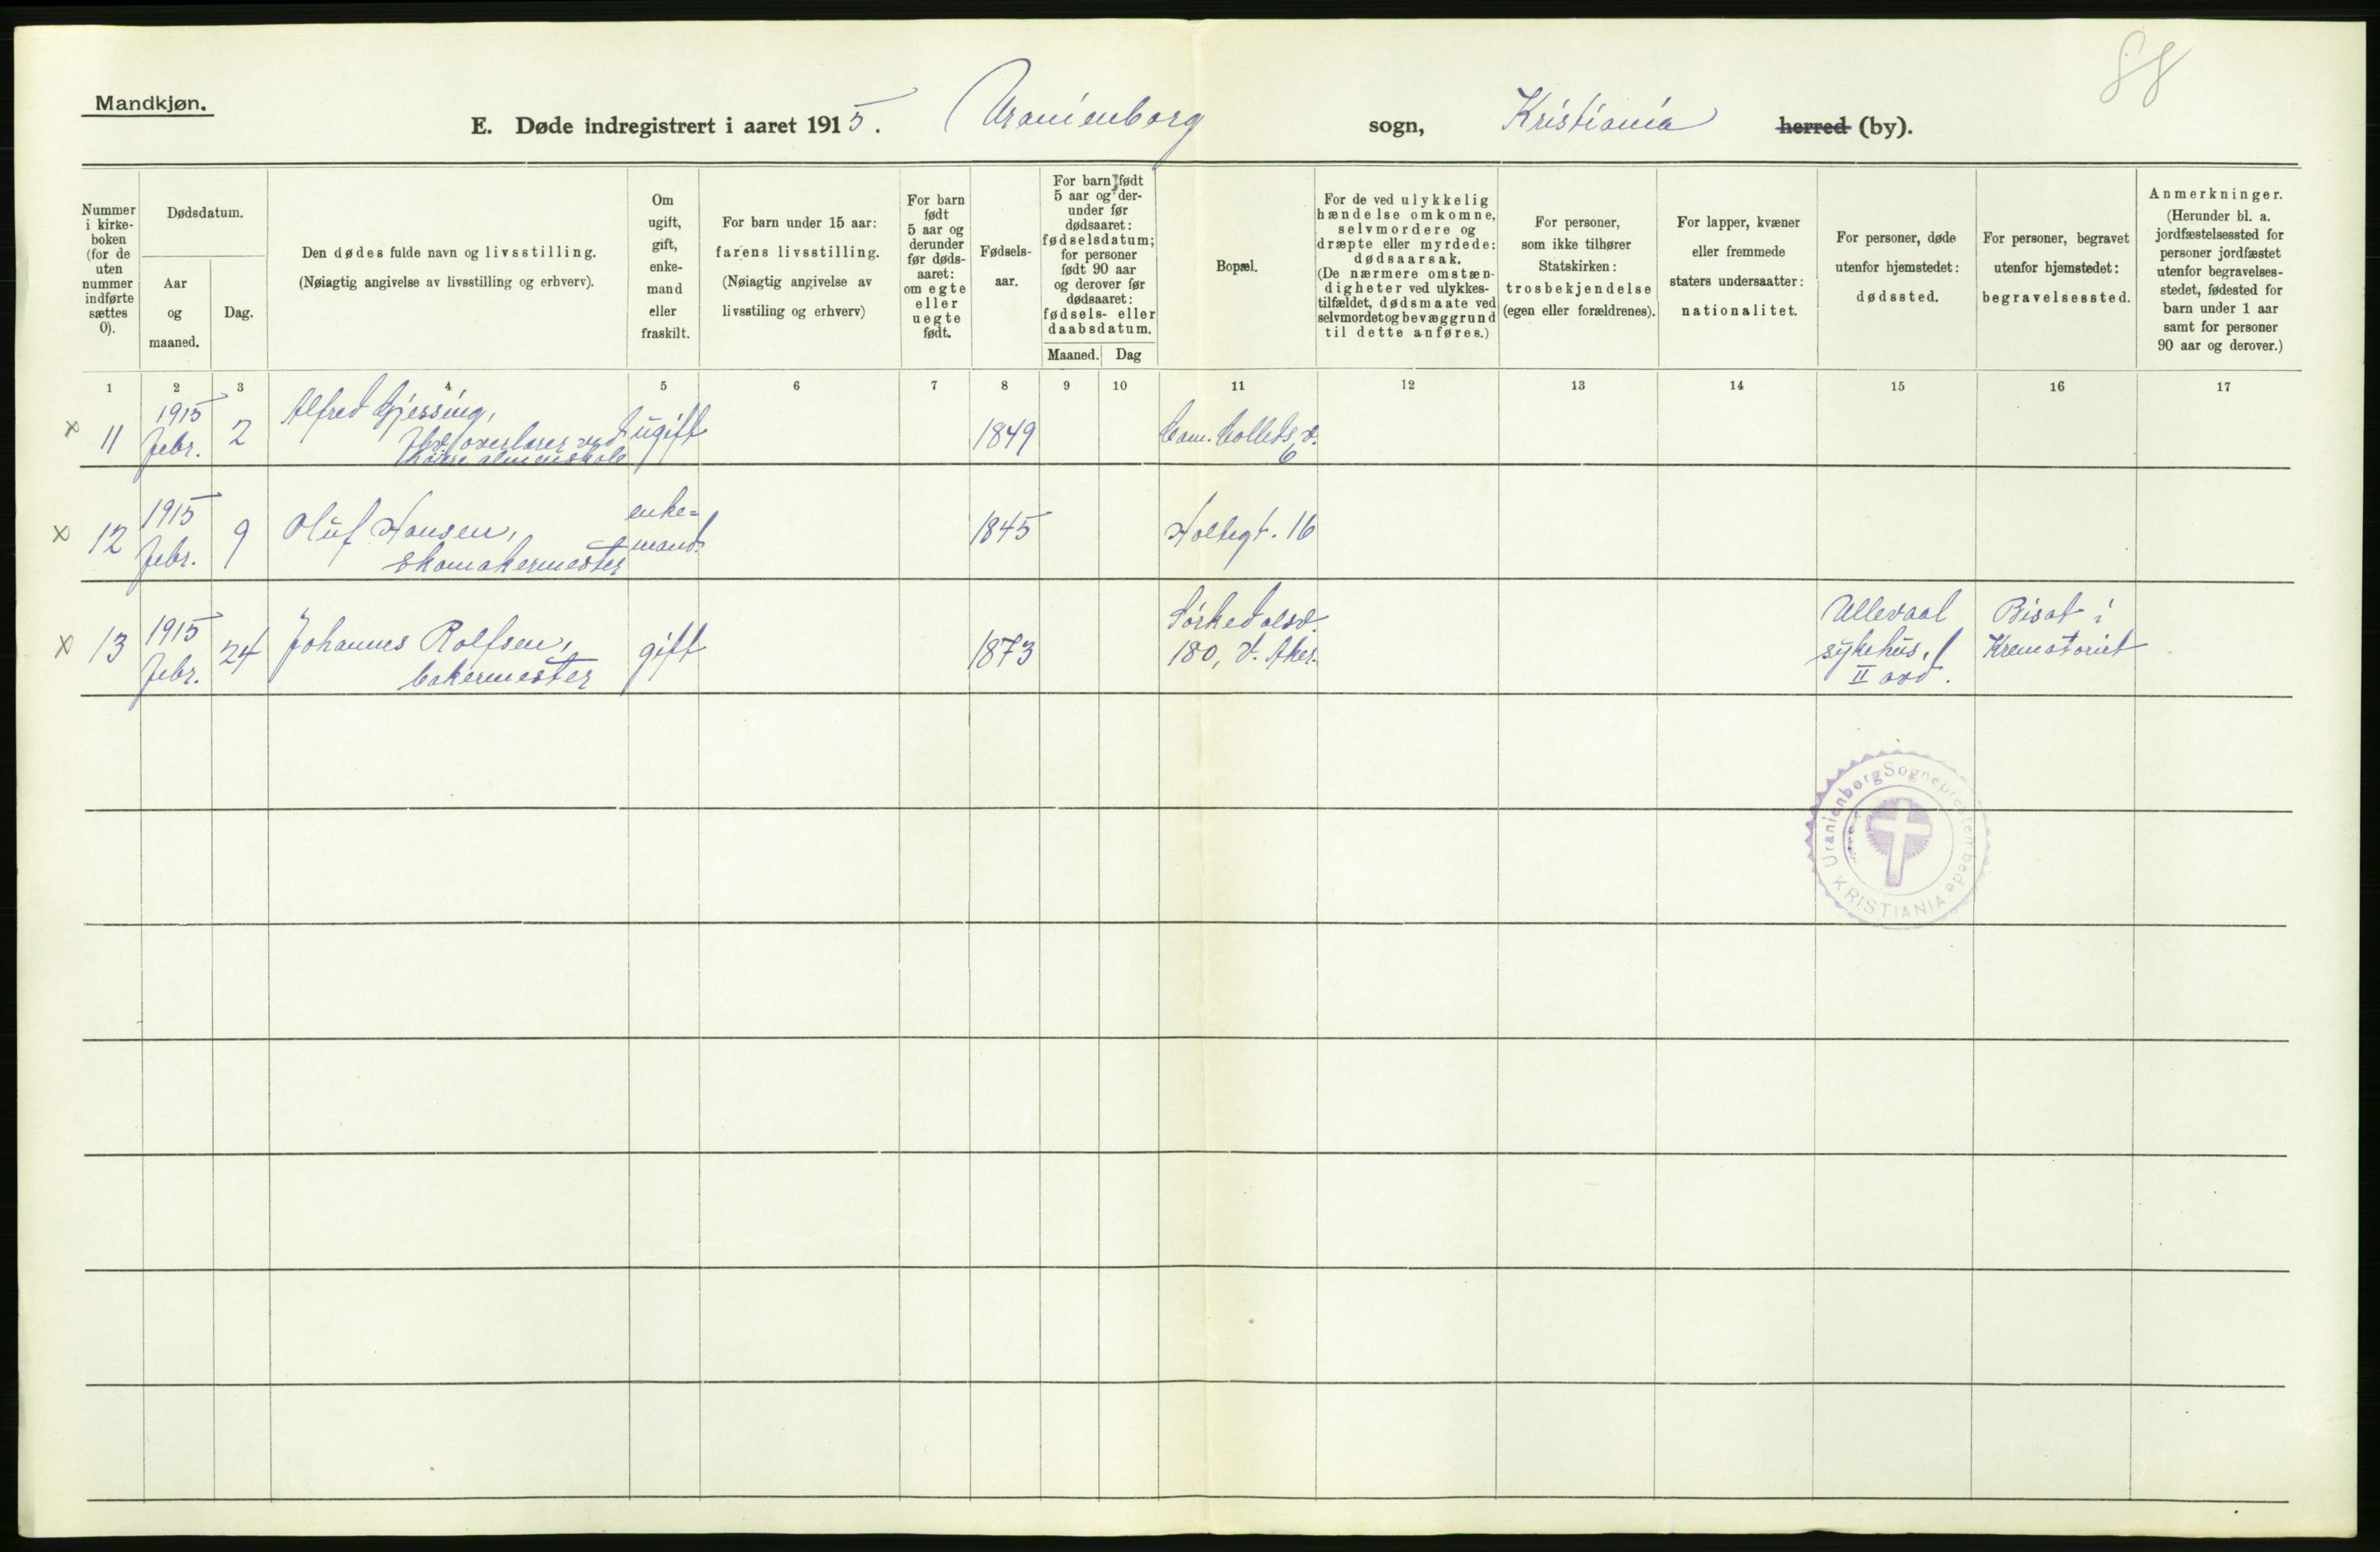 88
Mandkjøn.
E. Døde indregistrert i aaret 1915. Uranienborg sogn, Kristiania herred (by).
Nummer
i kirke-
boken
(for de
uten
nummer
indførte
sættes
0).
Dødsdatum.
Aar
og
maaned.
Dag.
Den dødes fulde navn og livsstilling.
(Nøiagtig angivelse av livsstilling og erhverv).
Om
ugift,
gift,
enke-
mand
eller
fraskilt.
For barn under 15 aar:
farens livsstilling.
(Nøiagtig angivelse av
livsstiling og erhverv)
For barn
født
5 aar og
derunder
før døds-
aaret:
om egte
eller
uegte
født.
Fødsels-
aar.
For barn født
5 aar og der-
under før
dødsaaret:
fødselsdatum;
for personer
født 90 aar
og derover før
dødsaaret:
fødsels- eller
daabsdatum.
Maaned. Dag
Bopæl.
For de ved ulykkelig
hændelse omkomne,
selvmordere og
dræpte eller myrdede:
dødsaarsak.
(De nærmere omstæn-
digheter ved ulykkes-
tilfældet, dødsmaate ved
selvmordet og bevæggrund
til dette anføres.)
For personer,
som ikke tilhører
Statskirken:
trosbekjendelse
(egen eller forældrenes).
For lapper, kvæner
eller fremmede
staters undersaatter:
nationalitet.
For personer, døde
utenfor hjemstedet:
dødssted.
For personer, begravet
utenfor hjemstedet:
begravelsessted.
Anmerkninger.
(Herunder bl. a.
jordfæstelsessted for
personer jordfæstet
utenfor begravelses-
stedet, fødested for
barn under 1 aar
samt for personer
90 aar og derover.)
1 2 3 4 5 6 7 8 9 10 11 12 13 14 15 16 17
x 11
1915
febr.
2
Alfred Gjessing,
overlærer ved
almenskole
ugift
1849
Cam. Colletts v.
6
x 12
1915
febr.
9
Oluf Hansen,
skomakermester
enke=
mand
1845
Holtegt. 16
x 13
1915
febr.
24
Johannes Rolfsen,
bakermester
gift
1873
Sørkedalsv.
180, V. Aker.
Ullevaal
sykehus,
II avd.
Bisat i
Krematoriet
Uranienborg Sogneprestembede
KRISTIANIA